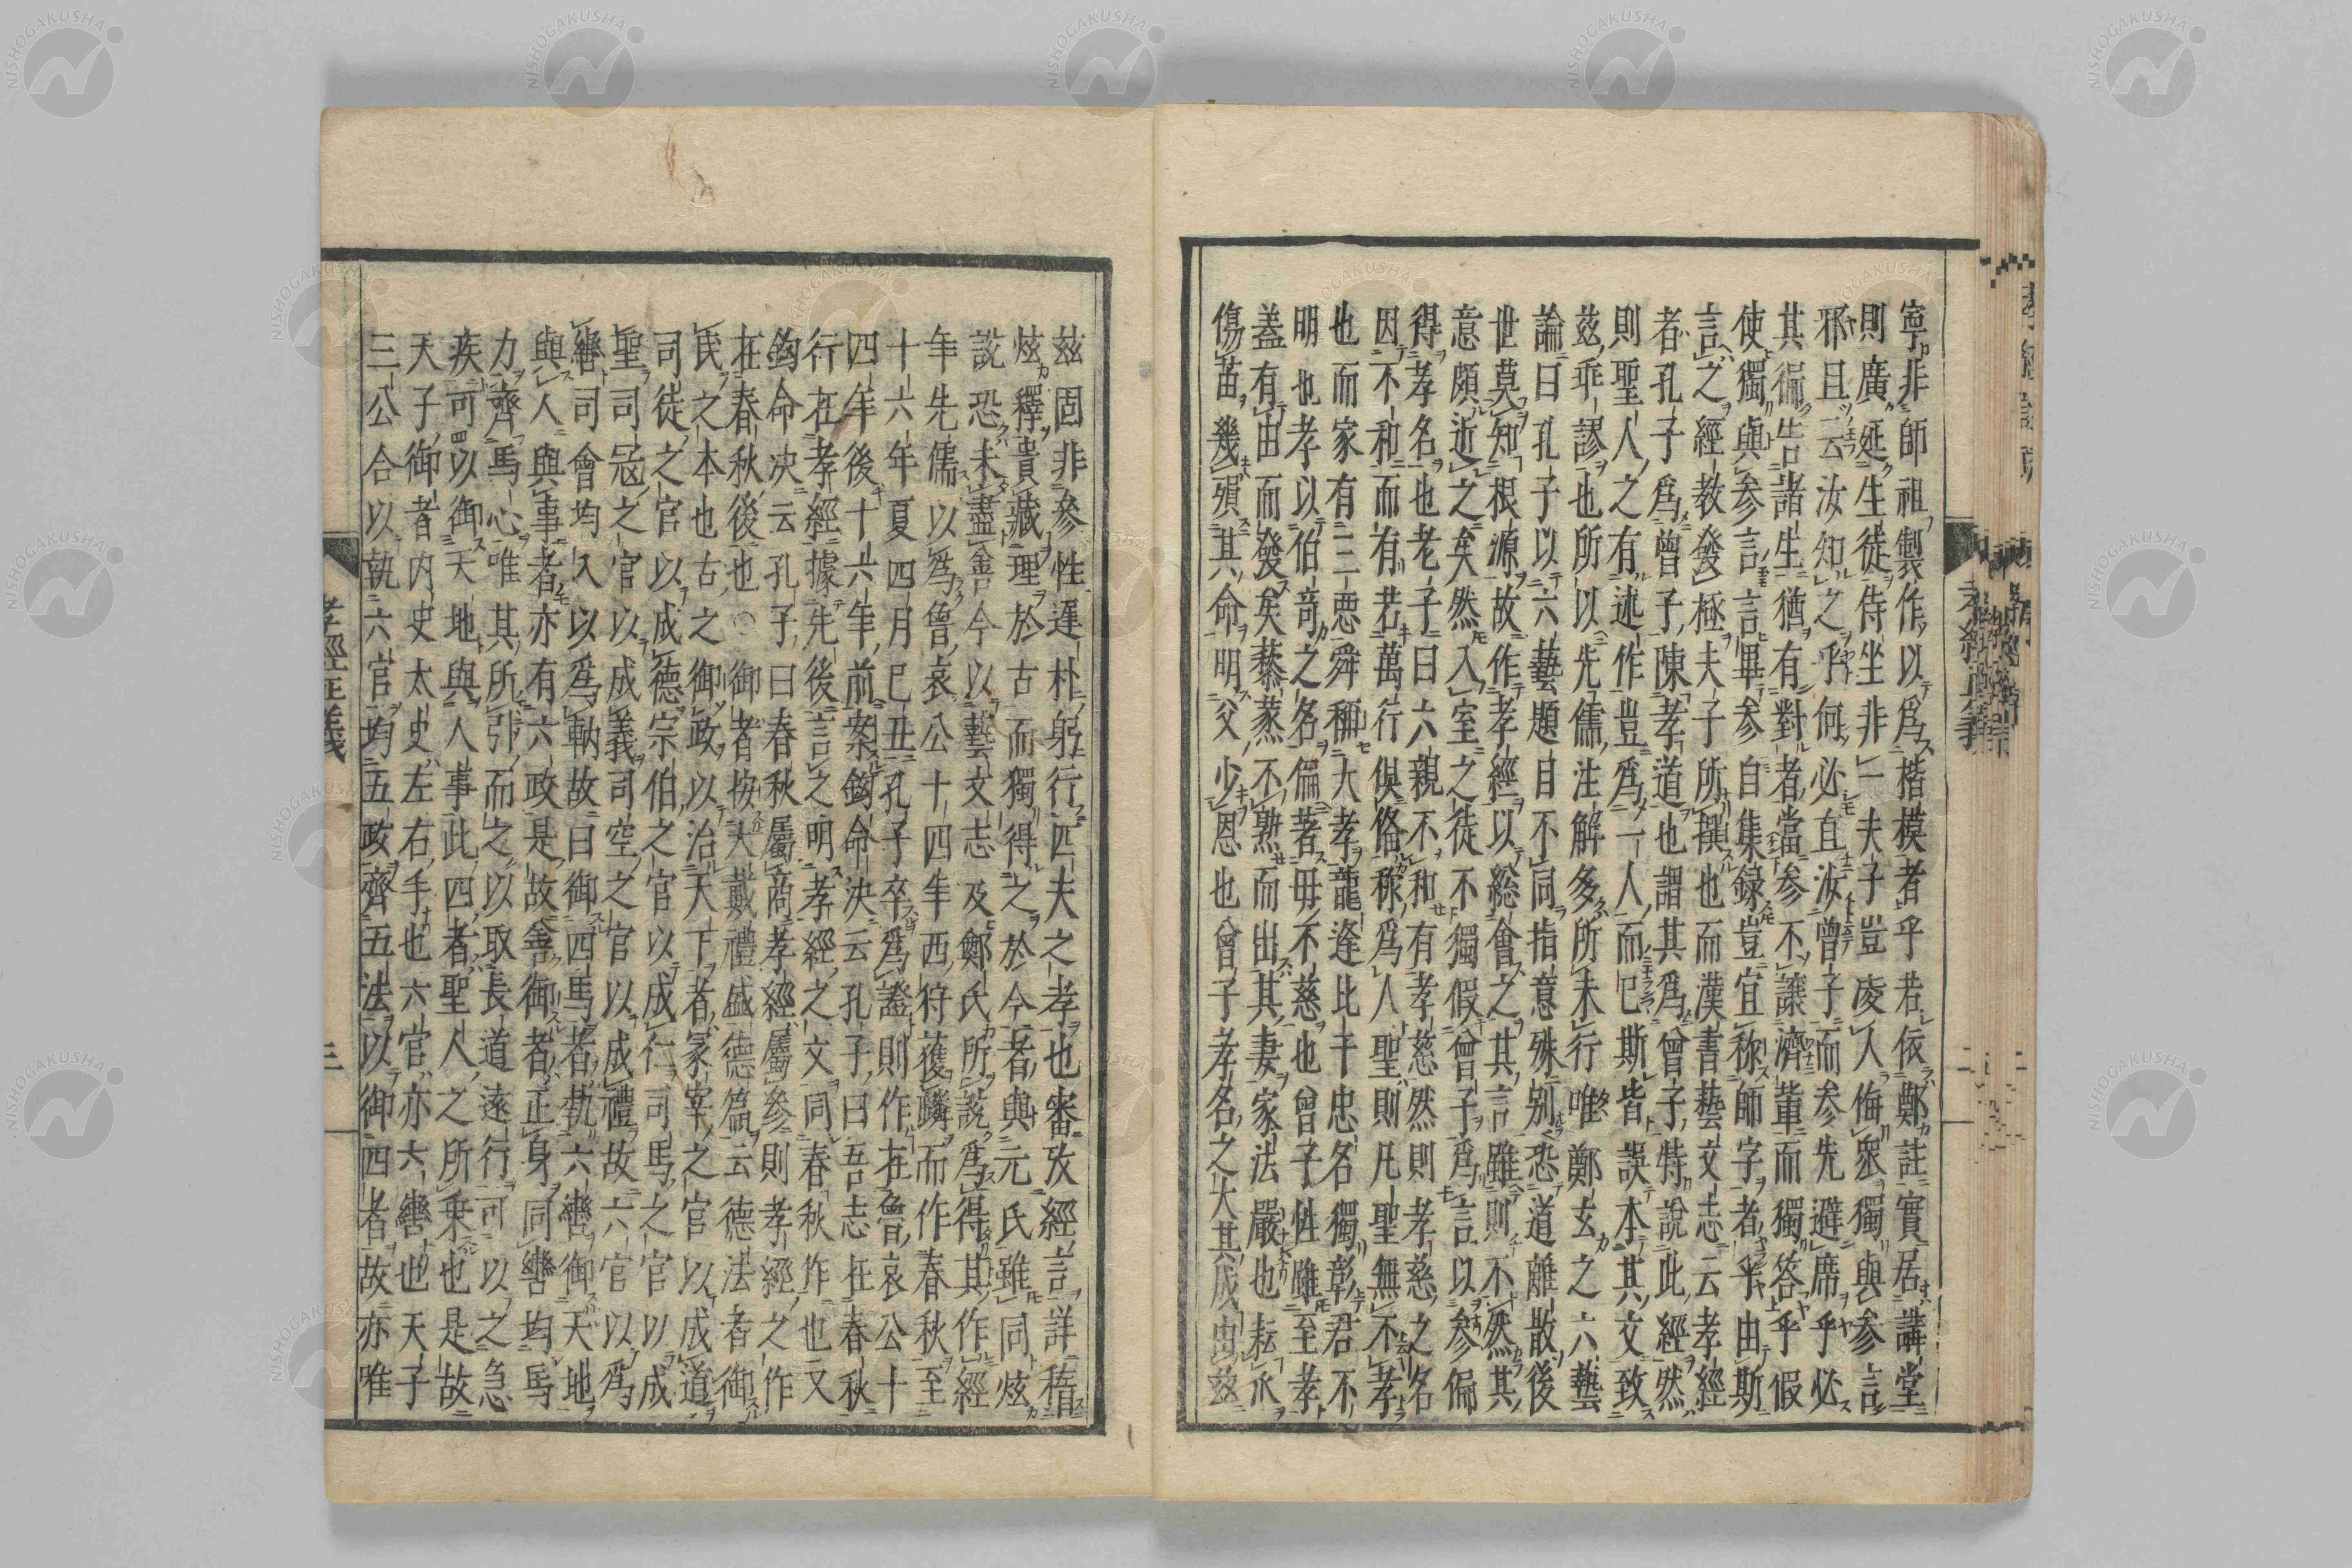 寧非師祖製作以爲楷模者乎若依鄭註實居講堂
則廣延生徒侍坐非一夫子豈凌人侮衆獨與參言
邪且云汝知之乎何必直汝曾子而參先避席乎必
其徧告諸生猶有對者當參不讓濟輩而獨答乎假
使獨與參言言畢參自集録豈宜稱師字者乎由斯
言之經教發極夫子所撰也而漢書藝文志云孝經
者孔子爲曾子陳孝道也謂其爲曾子特說此經然
則聖人之有述作豈爲一人而已斯皆誤本其文致
茲乖謬也所以先儒注解多所未行唯鄭玄之六藝
論曰孔子以六藝題目不同指意殊別恐道離散後
世莫知根源故作孝經以総會之其言雖則不然其
意頗近之矣然入室之徒不獨假曾子爲言以參偏
得孝名也老子曰六親不和有孝慈然則孝慈之名
因不和而有若萬行俱俻稱爲人聖則凡聖無不孝
也而家有三悪舜稱大孝龍逢比干忠名獨彰君不
明也孝以伯奇之名偏著母不慈也曾子性雖至孝
蓋有由而發矣藜蒸不熟而出其妻家法嚴也耘瓜
傷苗幾殞其命明父少恩也曾子孝名之大其成由茲
茲固非參性遅朴躬行匹夫之孝也審攷經言詳稽
炫釋貴藏理於古而獨得之於今者與元氏雖同炫
說恐未盡善今以藝文志及鄭氏所說爲得其作經
年先儒以爲魯哀公十四年西狩獲麟而作春秋至
十六年夏四月巳丑孔子卒爲證則作在魯哀公十
四年後十六年前案鈎命决云孔子曰吾志在春秋
行在孝經據先後言之明孝經之文同春秋作也又
鈎命决云孔子曰春秋屬商孝經屬參則孝經之作
在春秋後也○御者按大戴禮盛德篇云德法者御
民之本也古之御政以治天下者冢宰之官以成道
司徒之官以成德宗伯之官以成仁司馬之官以成
聖司冦之官以成義司空之官以成禮故六官以爲
轡司會均入以爲軜故曰御四馬者執六轡御天地
與人與事者亦有六政是故善御者正身同轡均馬
力齊馬心唯其所引而之以取長道遠行可以之急
疾可以御天地與人事此四者聖人之所乗也是故
天子御者内史太史左右手也六官亦六轡也天子
三公合以執六官均五政齊五法以御四者故亦唯
孝經正義
三